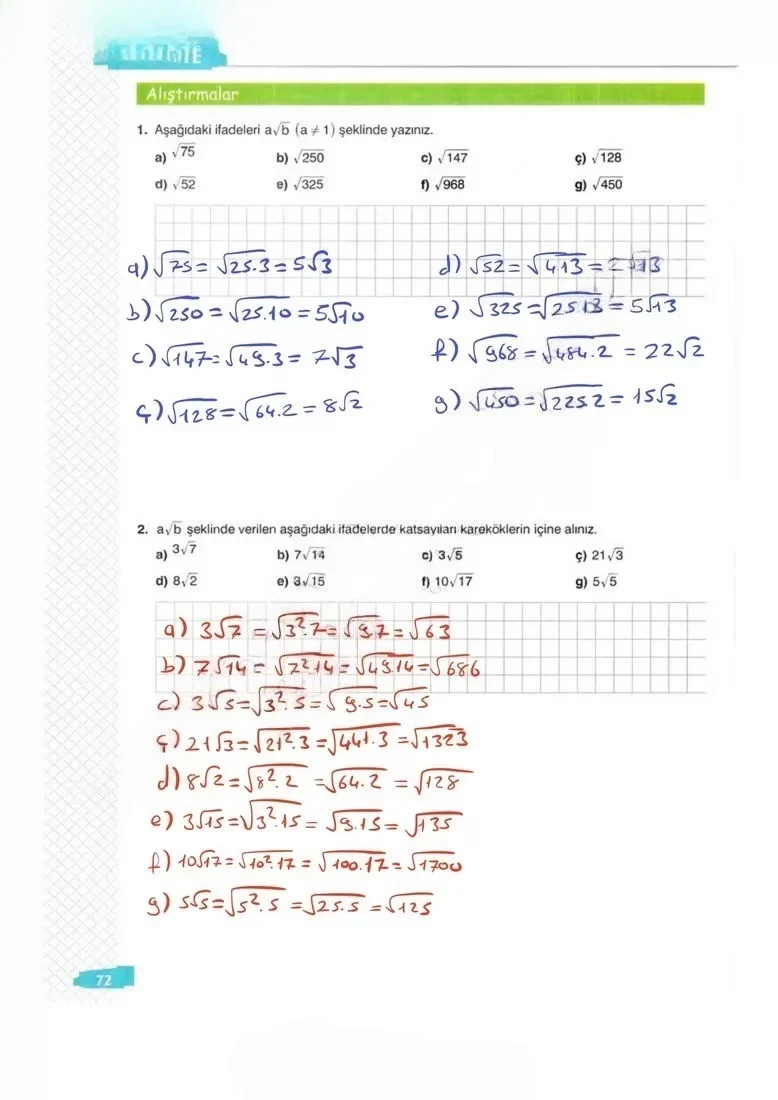 Alıştırmalar
1. Aşağıdaki ifadeleri a√b (a ≠ 1) şeklinde yazınız.
a) √75 b) √250 c) √147 ç) √128
d) √52 e) √325 f) √968 g) √450
a) √75 = √25.3 = 5√3 d) √52 = √4.13 = 2√13
b) √250 = √25.10 = 5√10 e) √325 = √25 13 = 5√13
c) √147 = √49.3 = 7√3 f) √968 = √484.2 = 22√2
ç) √128 = √64.2 = 8√2 g) √450 = √225.2 = 15√2
2. a√b şeklinde verilen aşağıdaki ifadelerde katsayıları kareköklerin içine alınız.
a) 3√7 b) 7√14 c) 3√5 ç) 21√3
d) 8√2 e) 3√15 f) 10√17 g) 5√5
a) 3√7 = √3².7 = √9.7 = √63
b) 7√14 = √7².14 = √49.14 = √686
c) 3√5 = √3².5 = √9.5 = √45
ç) 21√3 = √21².3 = √441.3 = √1323
d) 8√2 = √8².2 = √64.2 = √128
e) 3√15 = √3².15 = √9.15 = √135
f) 10√17 = √10².17 = √100.17 = √1700
g) 5√5 = √5².5 = √25.5 = √125
72